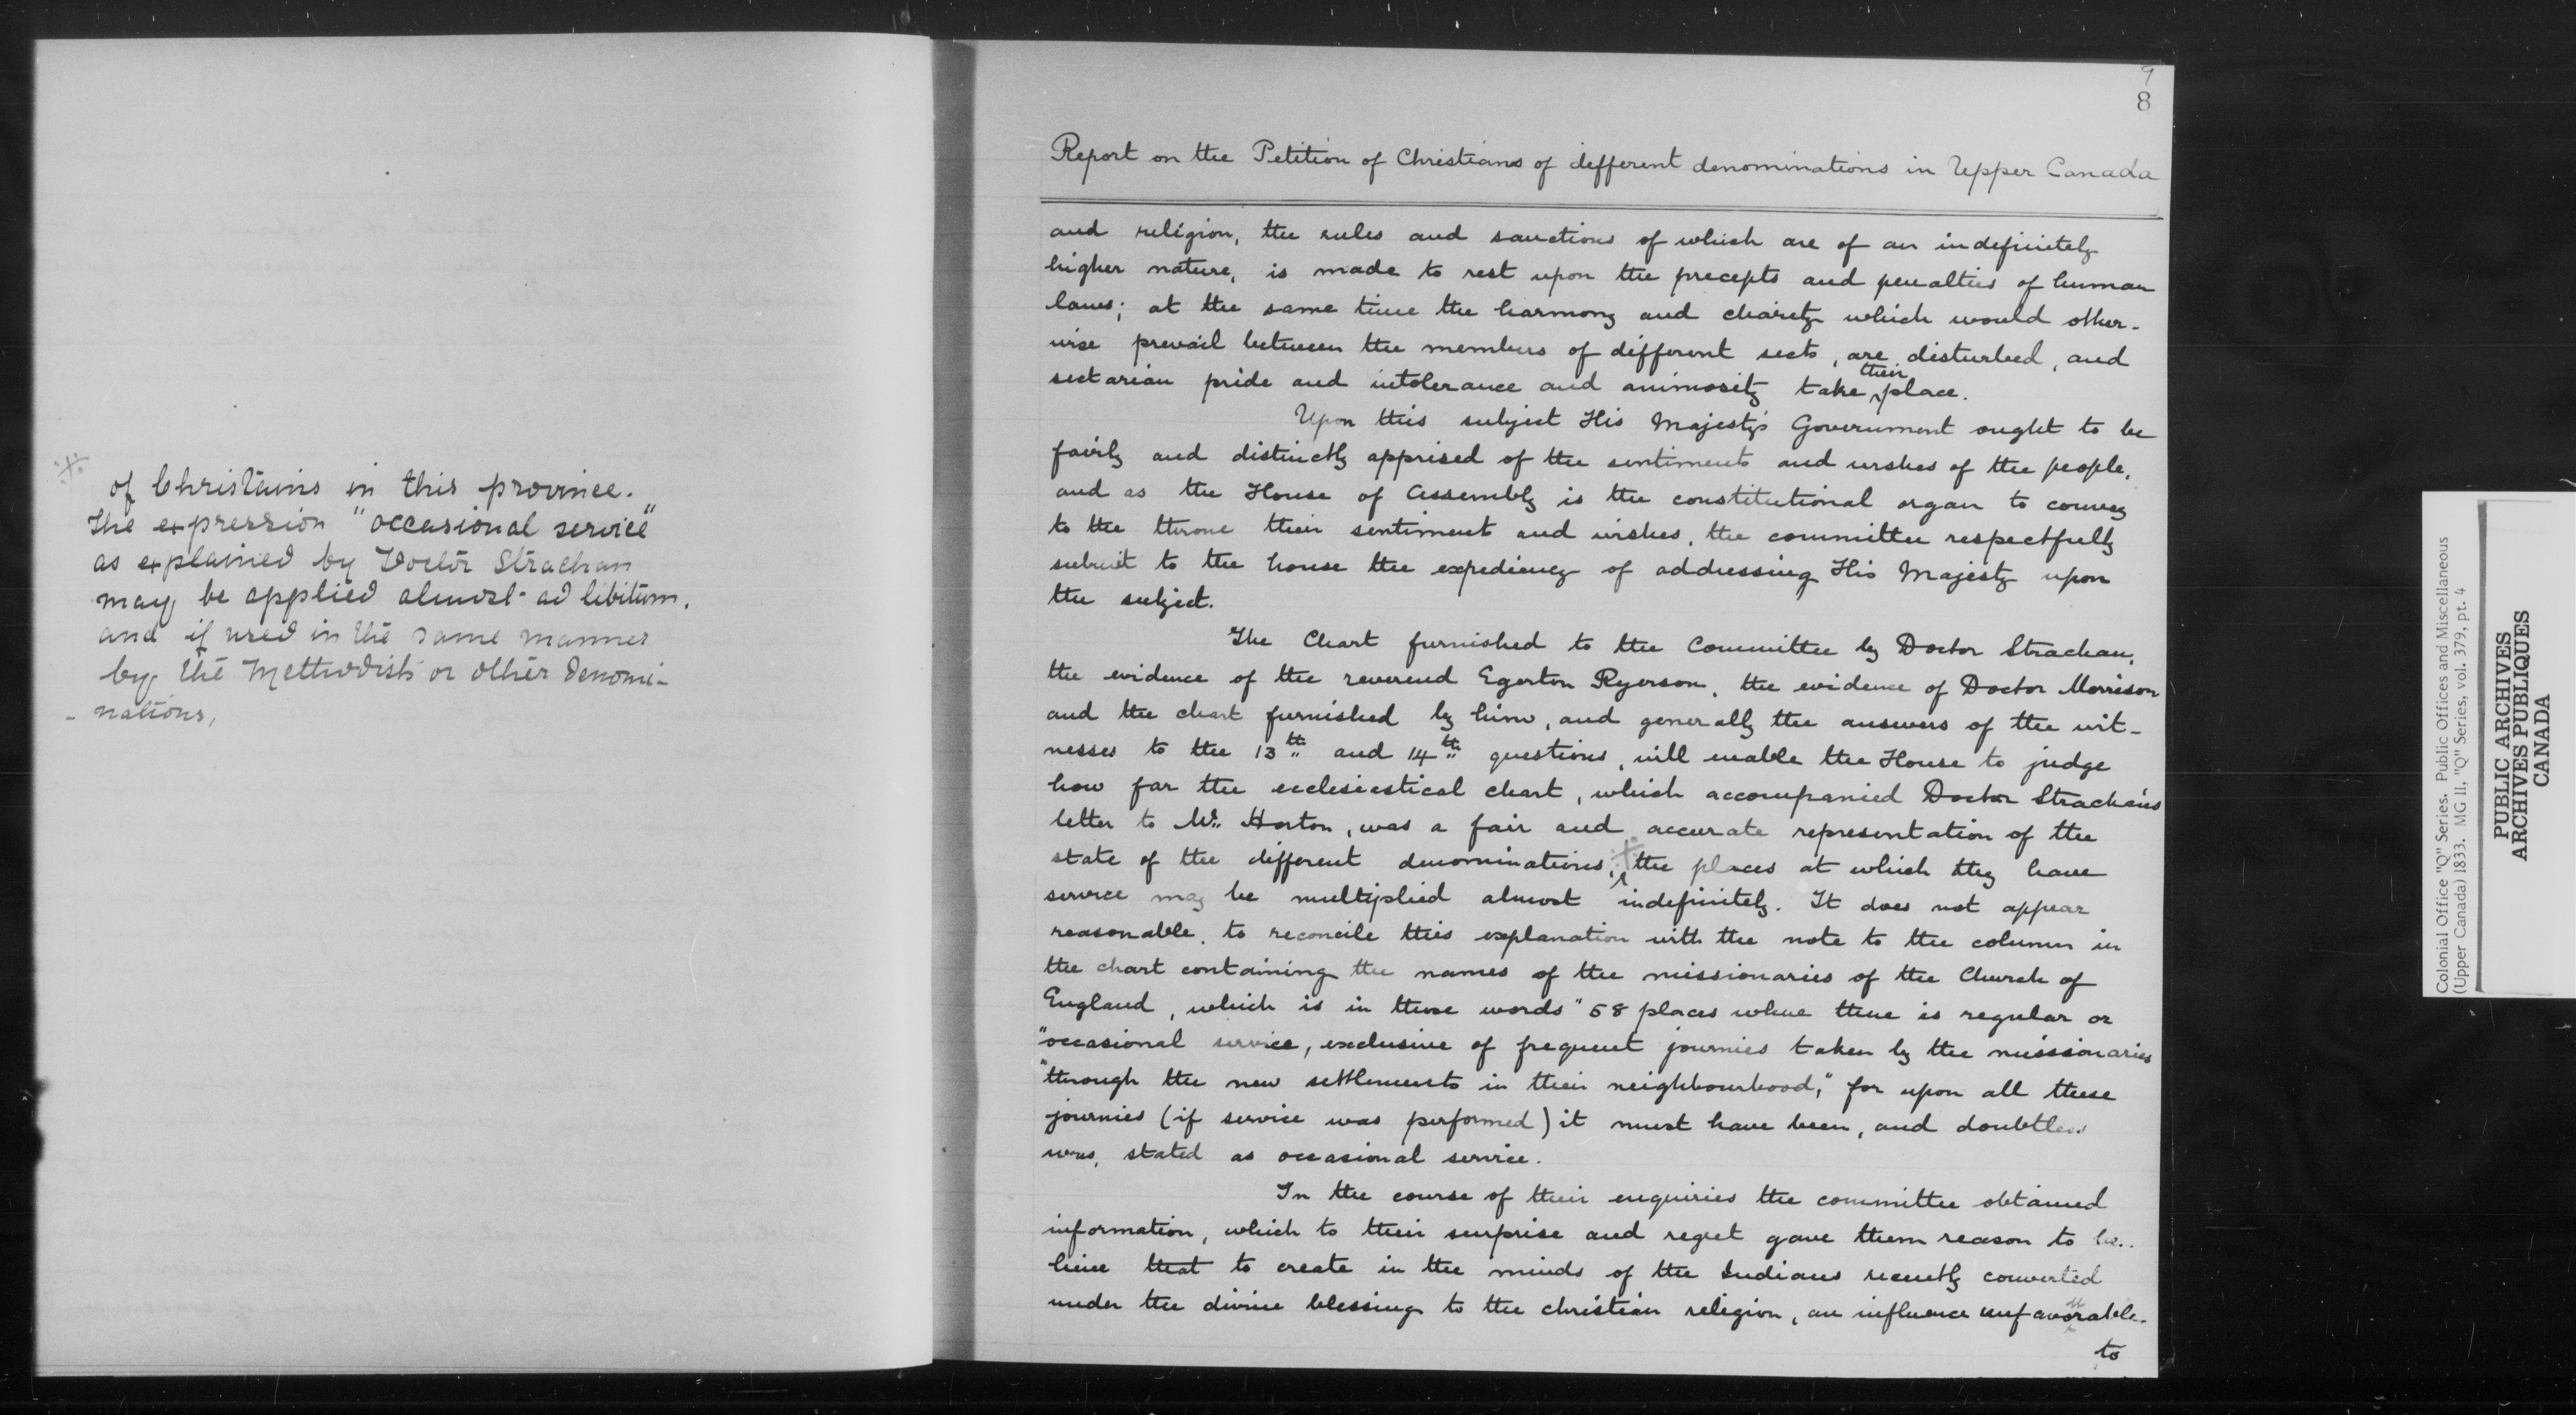 ※
of Christains in this province.
The expression "occasional service"
as explained by Doctor Strachan
may be applied almost ad libitum,
and if used in the same manner
by the Methodists or other denomi-
- nations,
9
8
Report on the Petition of Christians of different denominations in Upper Canada
and religion, the rules and sanctions of which are of an indefinitely
higher nature, is made to rest upon the precepts and penalties of human
laws; at the same time the harmony and charity which would other-
wise prevail between the members of different sects, are disturbed, and
sectarian pride and intolerance and animosity take their place.
Upon this subject His Majesty's Government ought to be
fairly and distinctly apprised of the sentiments and wishes of the people,
and as the House of Assembly is the constitutional organ to convey
to the throne their sentiments and wishes, the committee respectfully
submit to the house the expediency of addressing His Majesty upon
the subject.
The Chart furnished to the Committee by Doctor Strachan,
the evidence of the reverend Egerton Ryerson, the evidence of Doctor Morrison
and the chart furnished by him, and generally the answers of the wit-
nesses to the 13th and 14th questions, will enable the House to judge
how far the ecclesiastical chart, which accompanied Doctor Strachan's
letter to Mr. Horton, was a fair and accurate representation of the
state of the different denominations, ※ the places at which they have
service may be multiplied almost indefinitely. It does not appear
reasonable, to reconcile this explanation with the note to the column in
the chart containing the names of the missionaries of the Church of
England, which is in these words "58 places where there is regular or
"occasional service, exclusive of frequent journies taken by the missionaries
"through the new settlements in their neighbourhood;" for upon all these
journies (if service was performed) it must have been, and doubtless
was, stated as occasional service.
In the course of their enquiries the committee obtained
information, which to their surprise and regret gave them reason to be..
lieve that to create in the minds of the Indians recently converted
under the divine blessing to the christian religion, an influence unfavourable
to
Colonial Office "Q" Series. Public Offices and Miscellaneous
(Upper Canada) 1833. MG 11, "Q" Series, vol. 379, pt. 4
PUBLIC ARCHIVES
ARCHIVES PUBLIQUES
CANADA